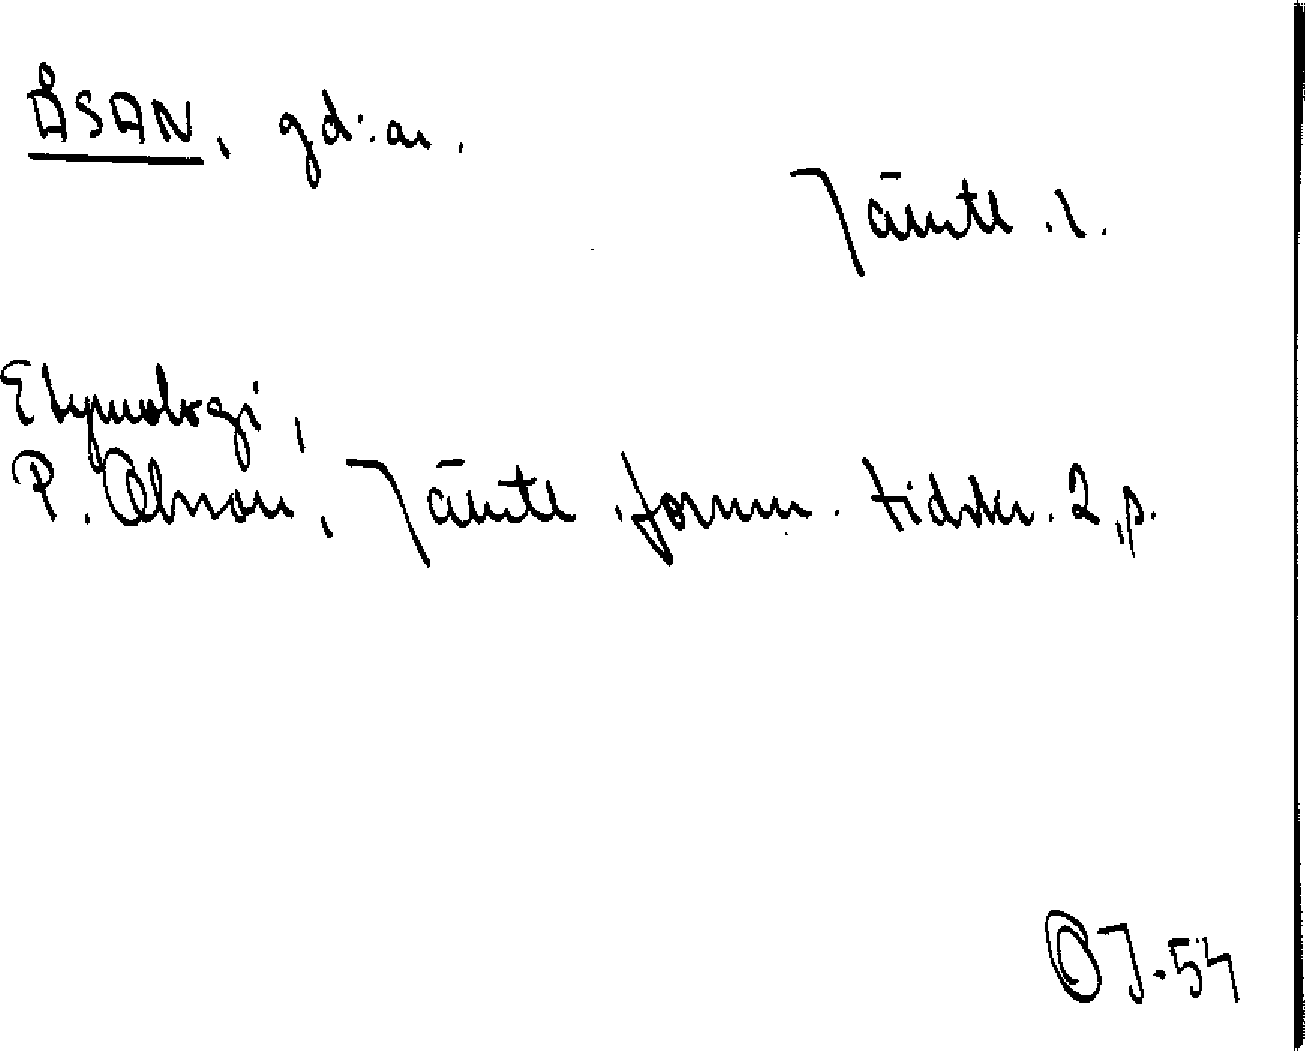 ÅSAN, gd:ar.
Jämtl.l.
Etymologi,
P. Olsson, Jämtl.fornm. tidskr. 2,p.
OJ-54